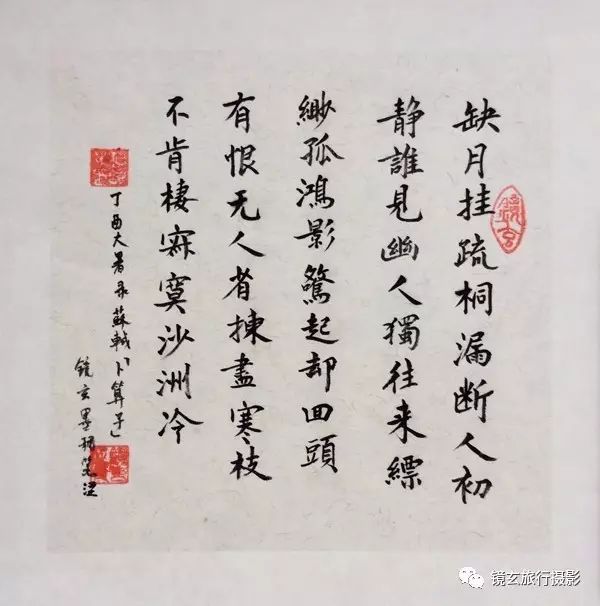 缺月挂疏桐漏断人初
静誰見幽人獨往来縹
緲孤鴻影驚起却回頭
有恨无人省揀盡寒枝
不肯棲寂寞沙洲冷
丁酉大暑录蘇軾「卜算子」
镜玄墨
镜玄
镜玄旅行摄影